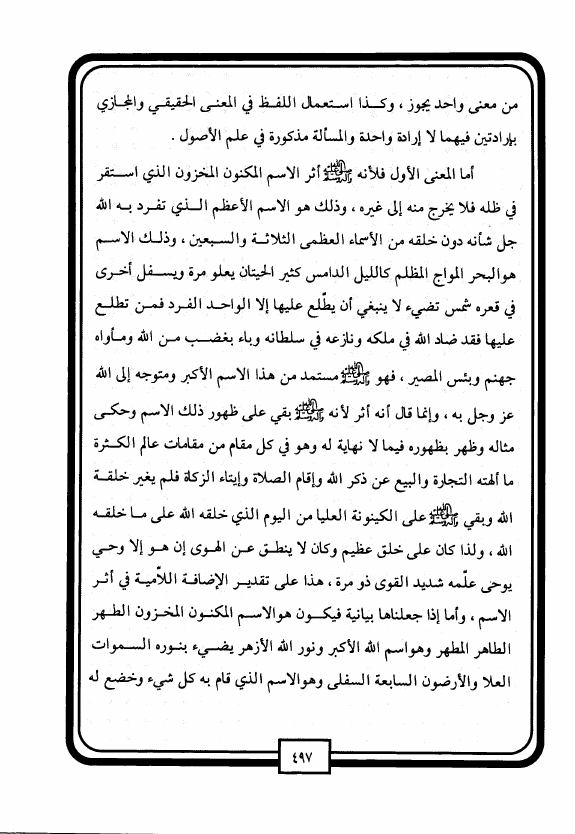 من معنى واحد يجوز ، وكــذا استعمال اللفــظ في المعنــى الحقيقــي والمجازي
بإرادتين فيهما لا إرادة واحدة والمسألة مذكورة في علم الأصول .
أما المعنى الأول فلأنه ﷺ أثر الاسم المكنون المخزون الذي استــقر
في ظله فلا يخرج منه إلى غيره ، وذلك هو الاسم الأعظم الــذي تفرد بــه الله
جل شأنه دون خلقه من الأسماء العظمى الثلاثــة والسبعين ، وذلــك الاســم
هوالبحر المواج المظلم كالليل الدامس كثير الحيتان يعلو مرة ويســفل أخرى
في قعره شمس تضيء لا ينبغي أن يطّلع عليها إلا الواحــد الفرد فمــن تطلــع
عليها فقد ضاد الله في ملكه ونازعه في سلطانه وباء بغضــب مــن الله ومــأواه
جهنم وبئس المصير ، فهو ﷺ مستمد من هذا الاسم الأكبر ومتوجه إلى الله
عز وجل به ، وإنما قال أنه أثر لأنه ﷺ بقي على ظهور ذلك الاسم وحكــى
مثاله وظهر بظهوره فيما لا نهاية له وهو في كل مقام من مقامات عالم الكــثرة
ما ألهته التجارة والبيع عن ذكر الله وإقام الصلاة وإيتاء الزكاة فلم يغير خلقــة
الله وبقي ﷺ على الكينونة العليا من اليوم الذي خلقه الله على مــا خلقــه
الله ، ولذا كان على خلق عظيم وكان لا ينطــق عــن الهــوى إن هــو إلا وحــي
يوحى علّمه شديد القوى ذو مرة ، هذا على تقديــر الإضافــة اللاّميــة في أثــر
الاســم ، وأما إذا جعلناها بيانية فيكــون هوالاسم المكنون المخــزون الطــهر
الطاهر المطهر وهواسم الله الأكبر ونور الله الأزهر يضــيء بنــوره الســموات
العلا والأرضون السابعة السفلى وهوالاسم الذي قام به كل شيء وخضع له
٤٩٧